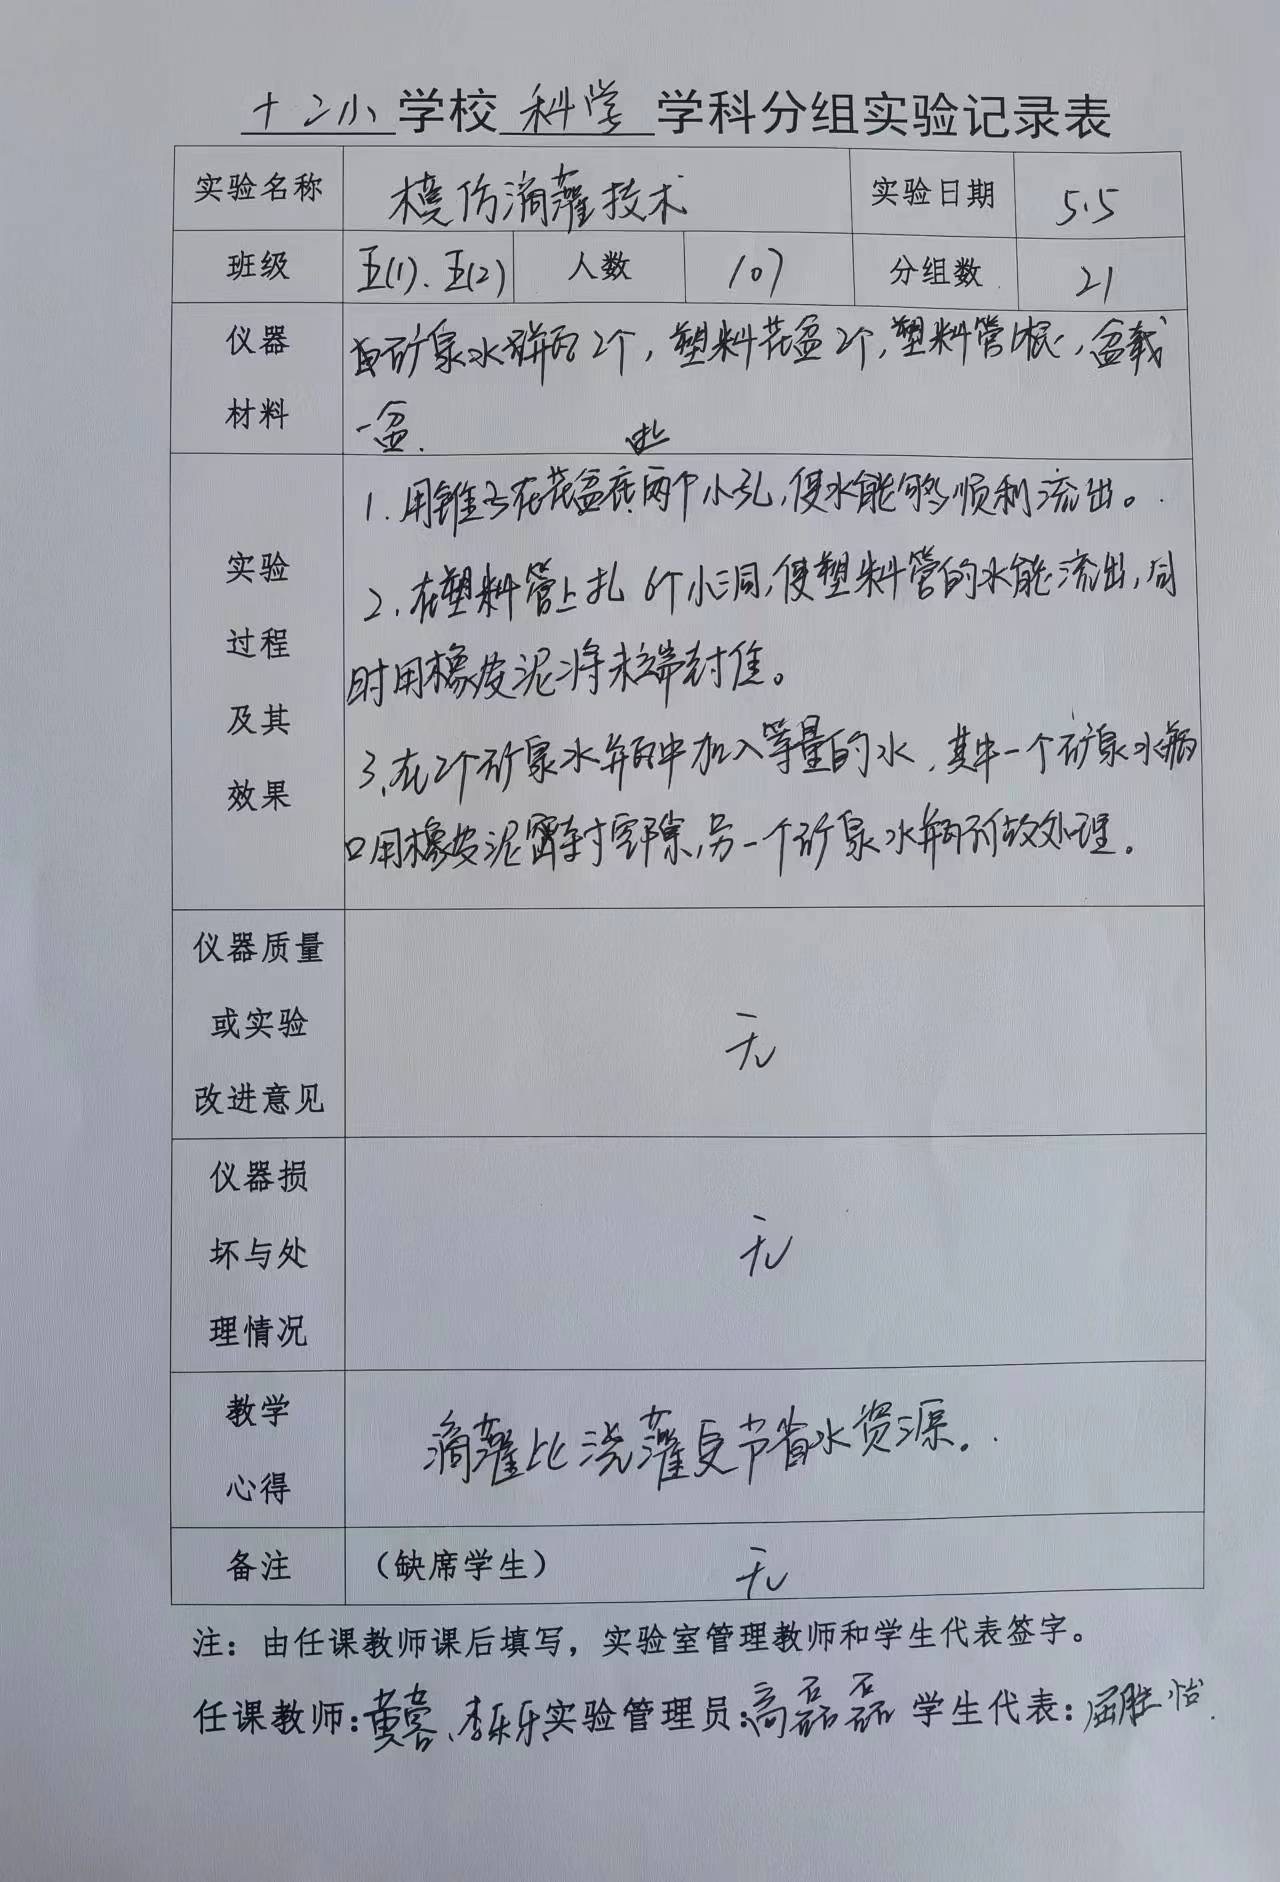 十二小学校 科学 学科分组实验记录表
实验名称 模仿滴灌技术 实验日期 5.5
班级 五(1)、五(2) 人数 107 分组数 21
仪器材料
矿泉水瓶2个，塑料花盆2个，塑料管1根，盆栽
一盆.
实验过程及其效果
1.用锥子在花盆底两个小孔，使水能够顺利流出。
2.在塑料管上扎6个小洞，使塑料管的水能流出，同
时用橡皮泥将末端封住。
3.在2个矿泉水瓶中加入等量的水，其中一个矿泉水瓶
口用橡皮泥密封空隙，另一个矿泉水瓶不做处理。
仪器质量或实验改进意见 无
仪器损坏与处理情况 无
教学心得 滴灌比浇灌更节省水资源。
备注 （缺席学生） 无
注：由任课教师课后填写，实验室管理教师和学生代表签字。
任课教师：黄蓉、李乐乐 实验管理员：高磊磊 学生代表：屈胜怡